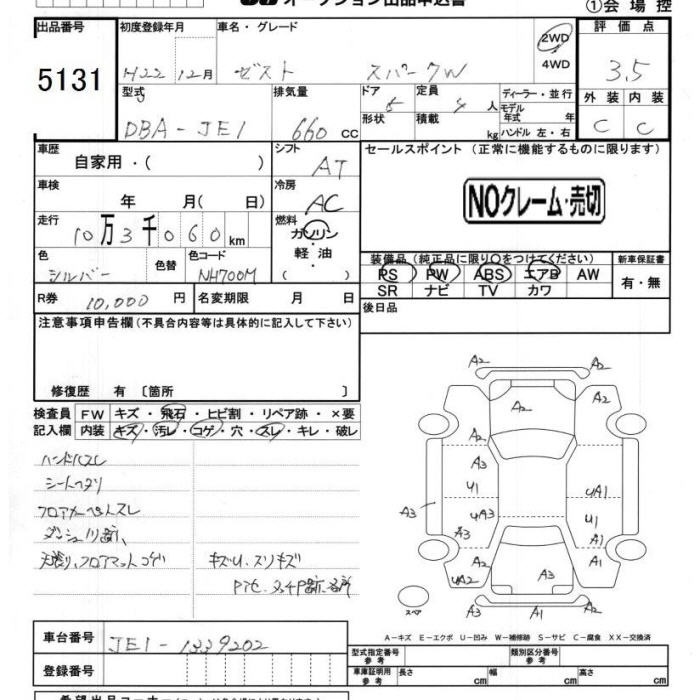 オークション出品申込書
①会場控
出品番号
初度登録年月
車名・グレード
評価点
5131
H22 12月
ゼスト
スパークW
2WD
4WD
3.5
型式
排気量
ドア
定員
ディーラー・並行
外装
内装
DBA-JE1
660 cc
5
4 人
モデル年式 年
形状
積載
kg
ハンドル 左・右
C
C
車歴
自家用・( )
シフト
AT
セールスポイント (正常に機能するものに限ります)
車検
年 月( 日)
冷房
AC
NOクレーム・売切
走行
10万3千060km
燃料
ガソリン
軽油
( )
色
シルバー
色替
色コード
NH700M
装備品(純正品に限り〇をつけてください)
新車保証書
PS
PW
ABS
エアB
AW
有・無
SR
ナビ
TV
カワ
R券
10,000 円
名変期限
月 日
後日品
注意事項申告欄(不具合内容等は具体的に記入して下さい)
修復歴 有〔箇所 〕
検査員
FW
キズ・飛石・ヒビ割・リペア跡・×要
記入欄
内装
キズ・汚レ・コゲ・穴・スレ・キレ・破レ
ハンドルスレ
シートヘタリ
フロアカーペットスレ
天張り、フロアマットコゲ
キズU、スリキズ
A2
A2
A2
A2
A2
A3
A3
U1
UA1
A3
UA3
U1
A3
A1
A2
UA2
A2
A3
A3
A1
A2
スペア
A-キズ E-エクボ U-凹み W-補修跡 S-サビ C-腐食 XX-交換済
車台番号
JE1-1339202
型式指定番号
参考
類別区分番号
参考
登録番号
車庫証明用
参考
長さ
cm
幅
cm
高さ
cm
希望出品コーナー